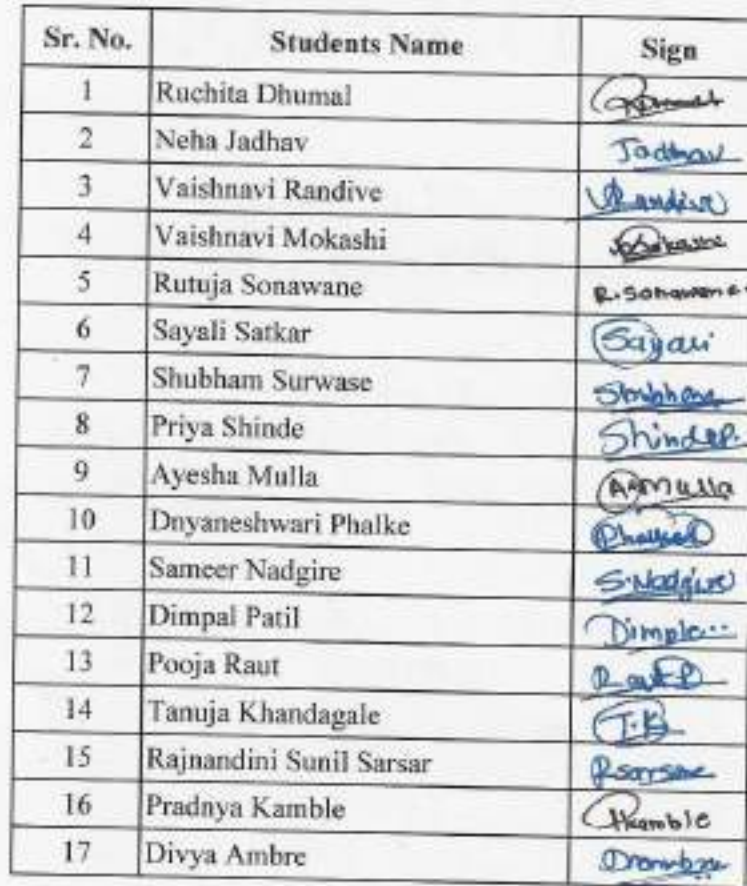 Sr. No. Students Name Sign
1 Ruchita Dhumal
2 Neha Jadhav Jadhav
3 Vaishnavi Randive VRandive
4 Vaishnavi Mokashi
5 Rutuja Sonawane R.Sonawane.
6 Sayali Satkar Sayali
7 Shubham Surwase
8 Priya Shinde ShindeP.
9 Ayesha Mulla A.Mulla
10 Dnyaneshwari Phalke
11 Sameer Nadgire S.Nadgire
12 Dimpal Patil Dimple..
13 Pooja Raut RautP
14 Tanuja Khandagale T.K
15 Rajnandini Sunil Sarsar
16 Pradnya Kamble PKamble
17 Divya Ambre